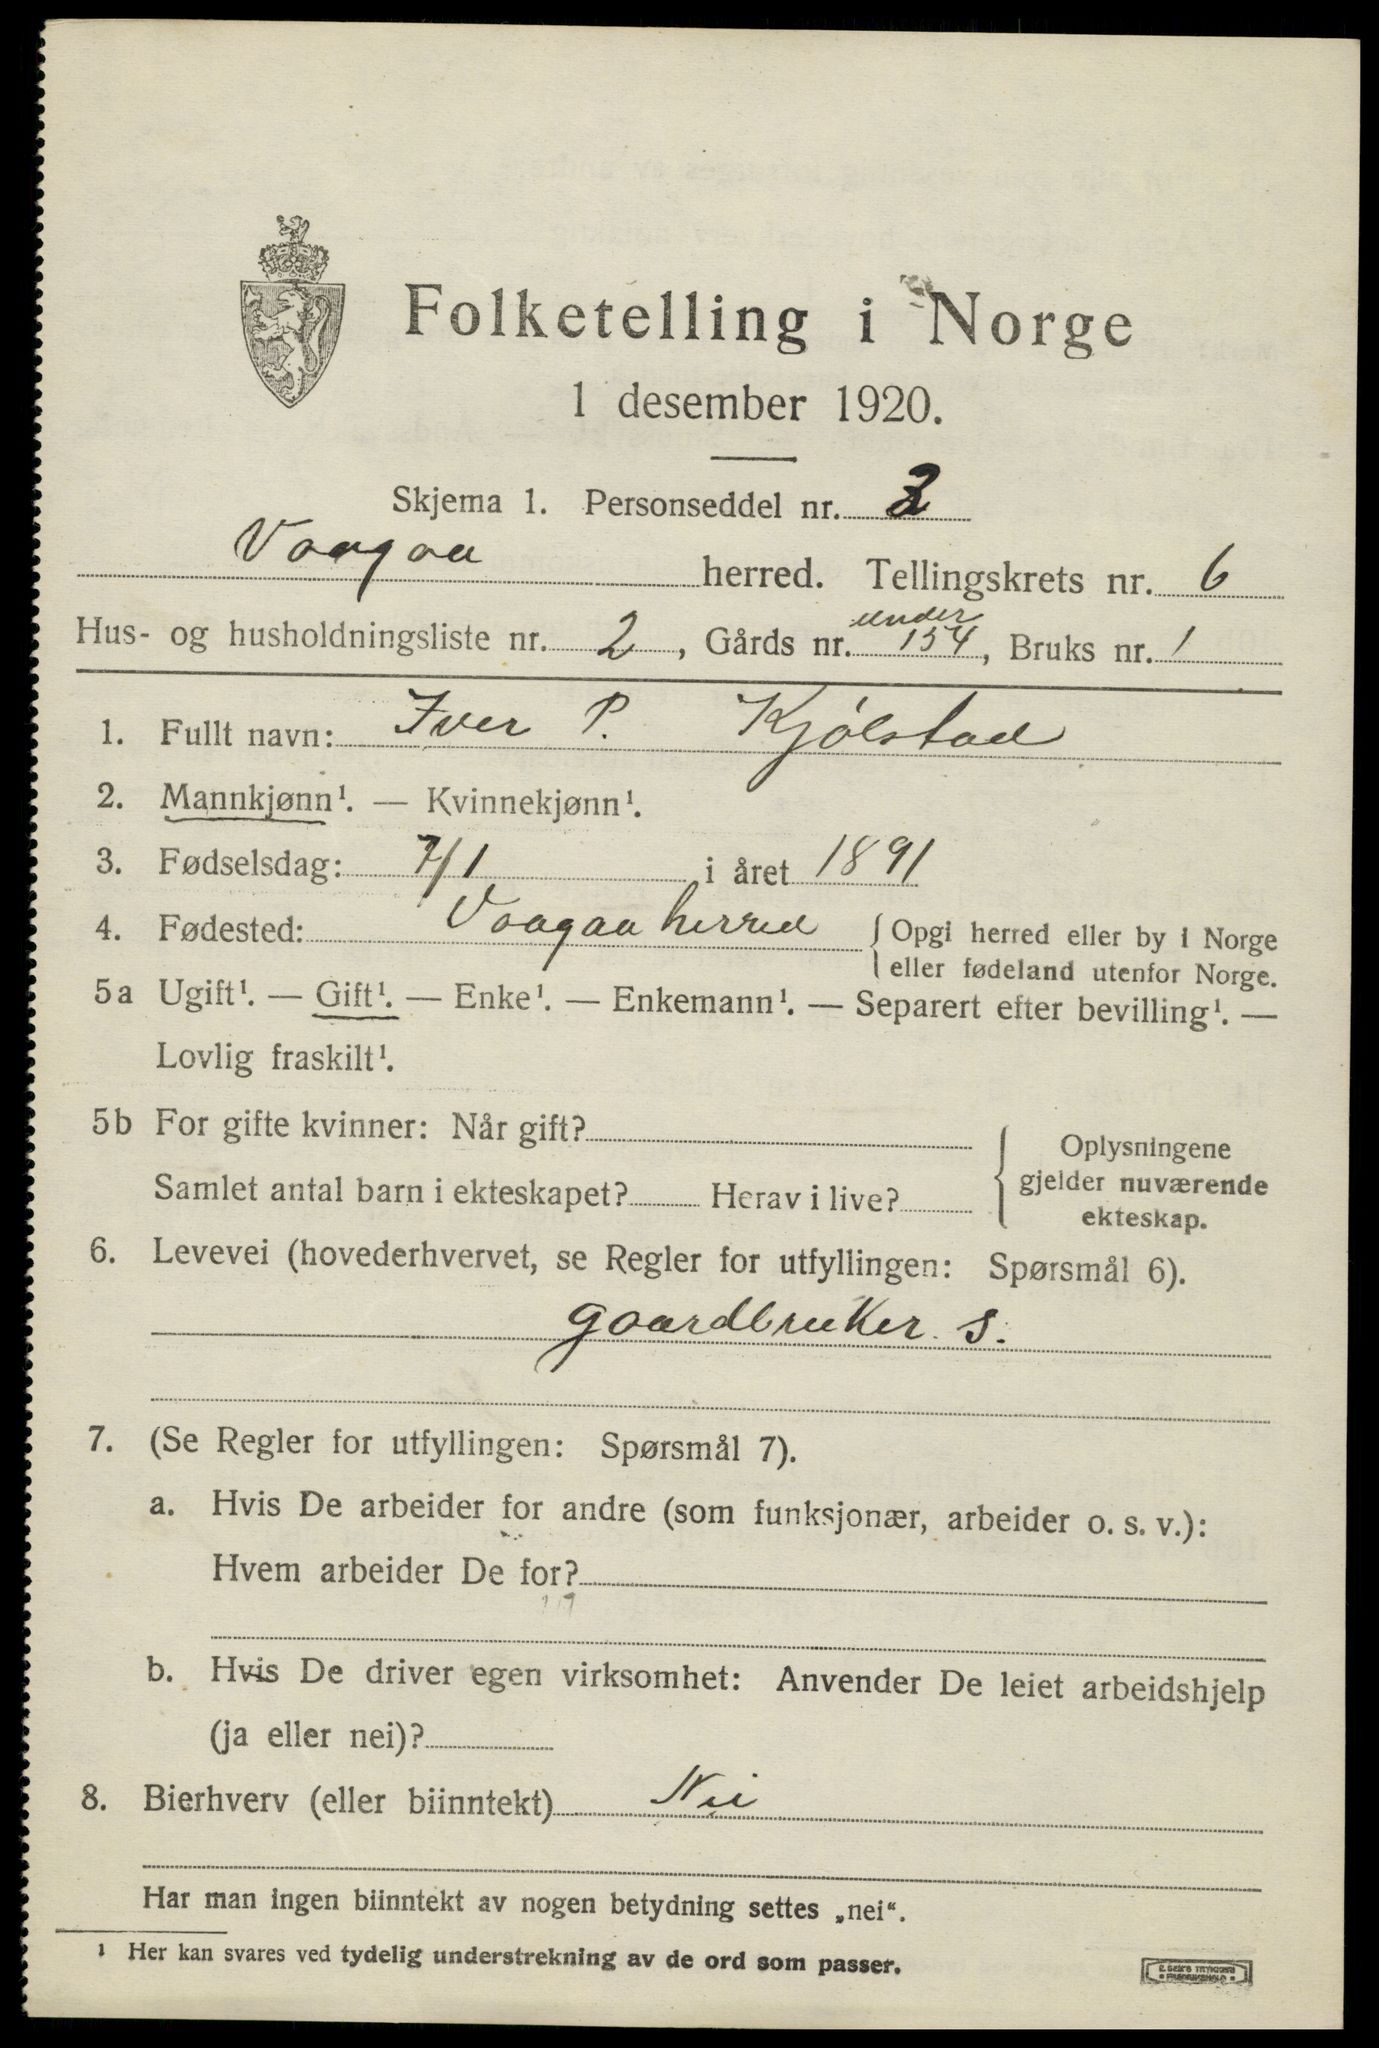 Folketelling i Norge
1 desember 1920.
Skjema 1. Personseddel nr.
Vaagaa herred. Tellingskrets nr. 6
under
Hus- og husholdningsliste nr. 2, Gårds nr. 154, Bruks nr. 1
1. Fullt navn: Iver P. Kjölstad
2. Mannkjønn¹. — Kvinnekjønn¹.
3. Fødselsdag: 7/1 i året 1891
4. Fødested: Vaagaa herred { Opgi herred eller by i Norge
eller fødeland utenfor Norge.
5a Ugift¹. — Gift¹. — Enke¹. — Enkemann¹. — Separert efter bevilling¹. —
Lovlig fraskilt¹.
5b For gifte kvinner: Når gift?
Samlet antal barn i ekteskapet? Herav i live?
{ Oplysningene
gjelder nuværende
ekteskap.
6. Levevei (hovederhvervet, se Regler for utfyllingen: Spørsmål 6).
gaardbruker. s.
7. (Se Regler for utfyllingen: Spørsmål 7).
a. Hvis De arbeider for andre (som funksjonær, arbeider o. s. v.):
Hvem arbeider De for?
b. Hvis De driver egen virksomhet: Anvender De leiet arbeidshjelp
(ja eller nei)?
8. Bierhverv (eller biinntekt) Nei
Har man ingen biinntekt av nogen betydning settes „nei“.
¹ Her kan svares ved tydelig understrekning av de ord som passer.